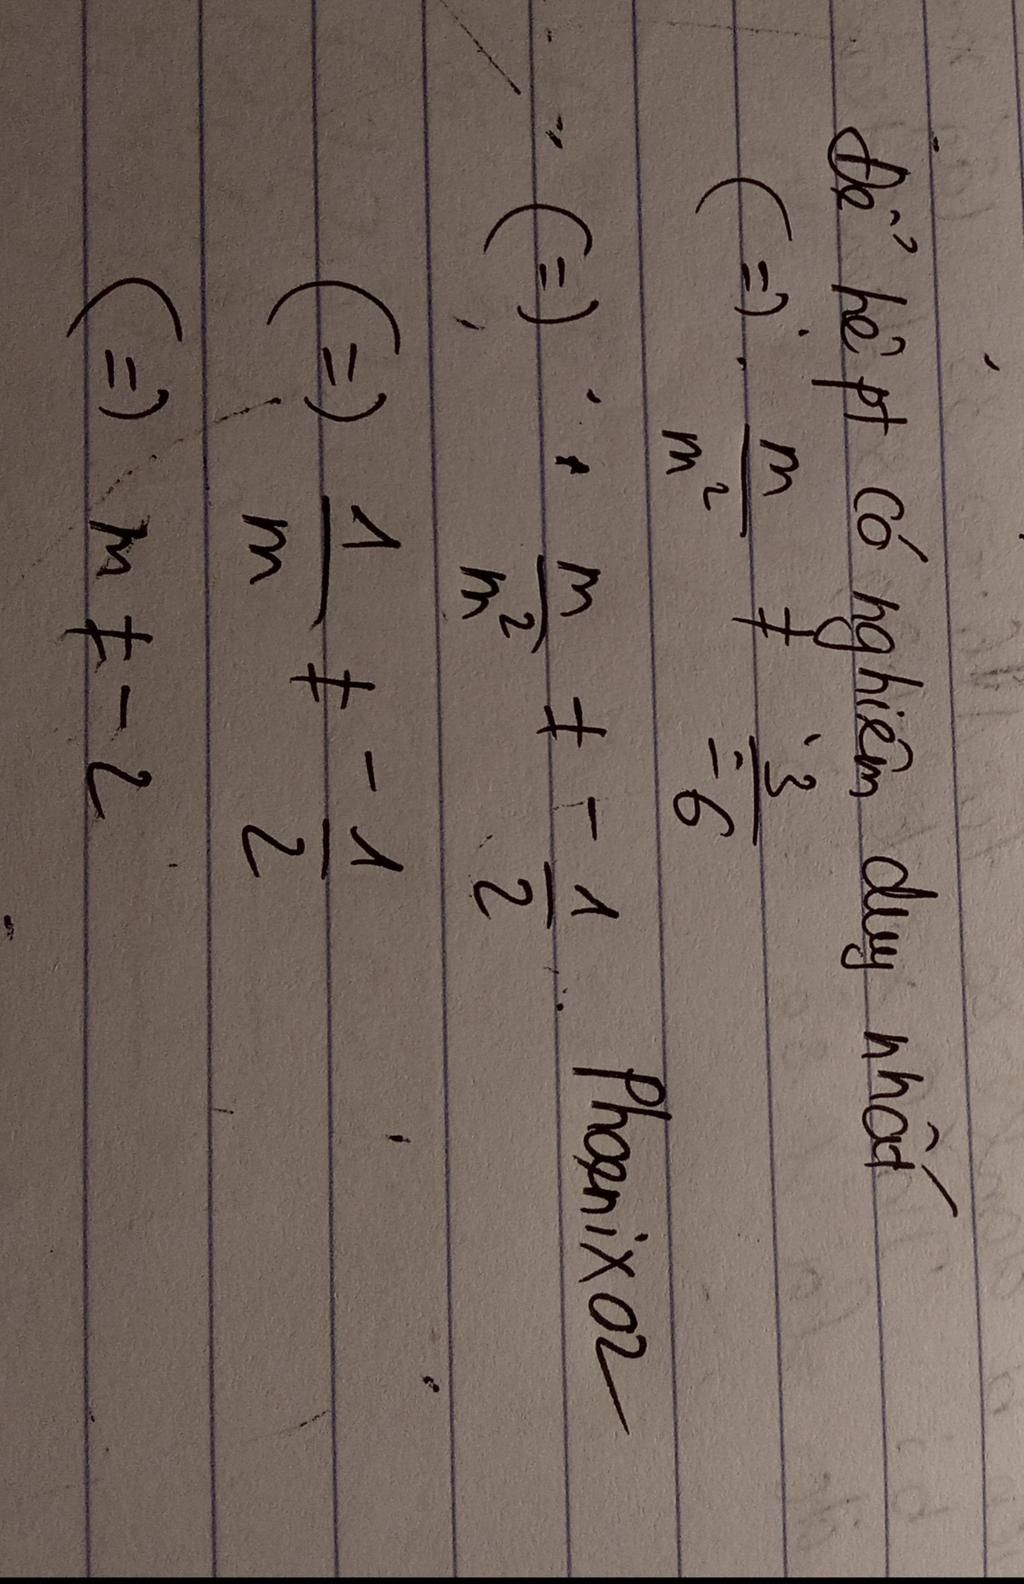 Để hệ pt có nghiệm duy nhất
(=) m/m² ≠ 3/-6
(=) m/m² ≠ -1/2 Phoenix02
(=) 1/m ≠ -1/2
(=) m ≠ -2